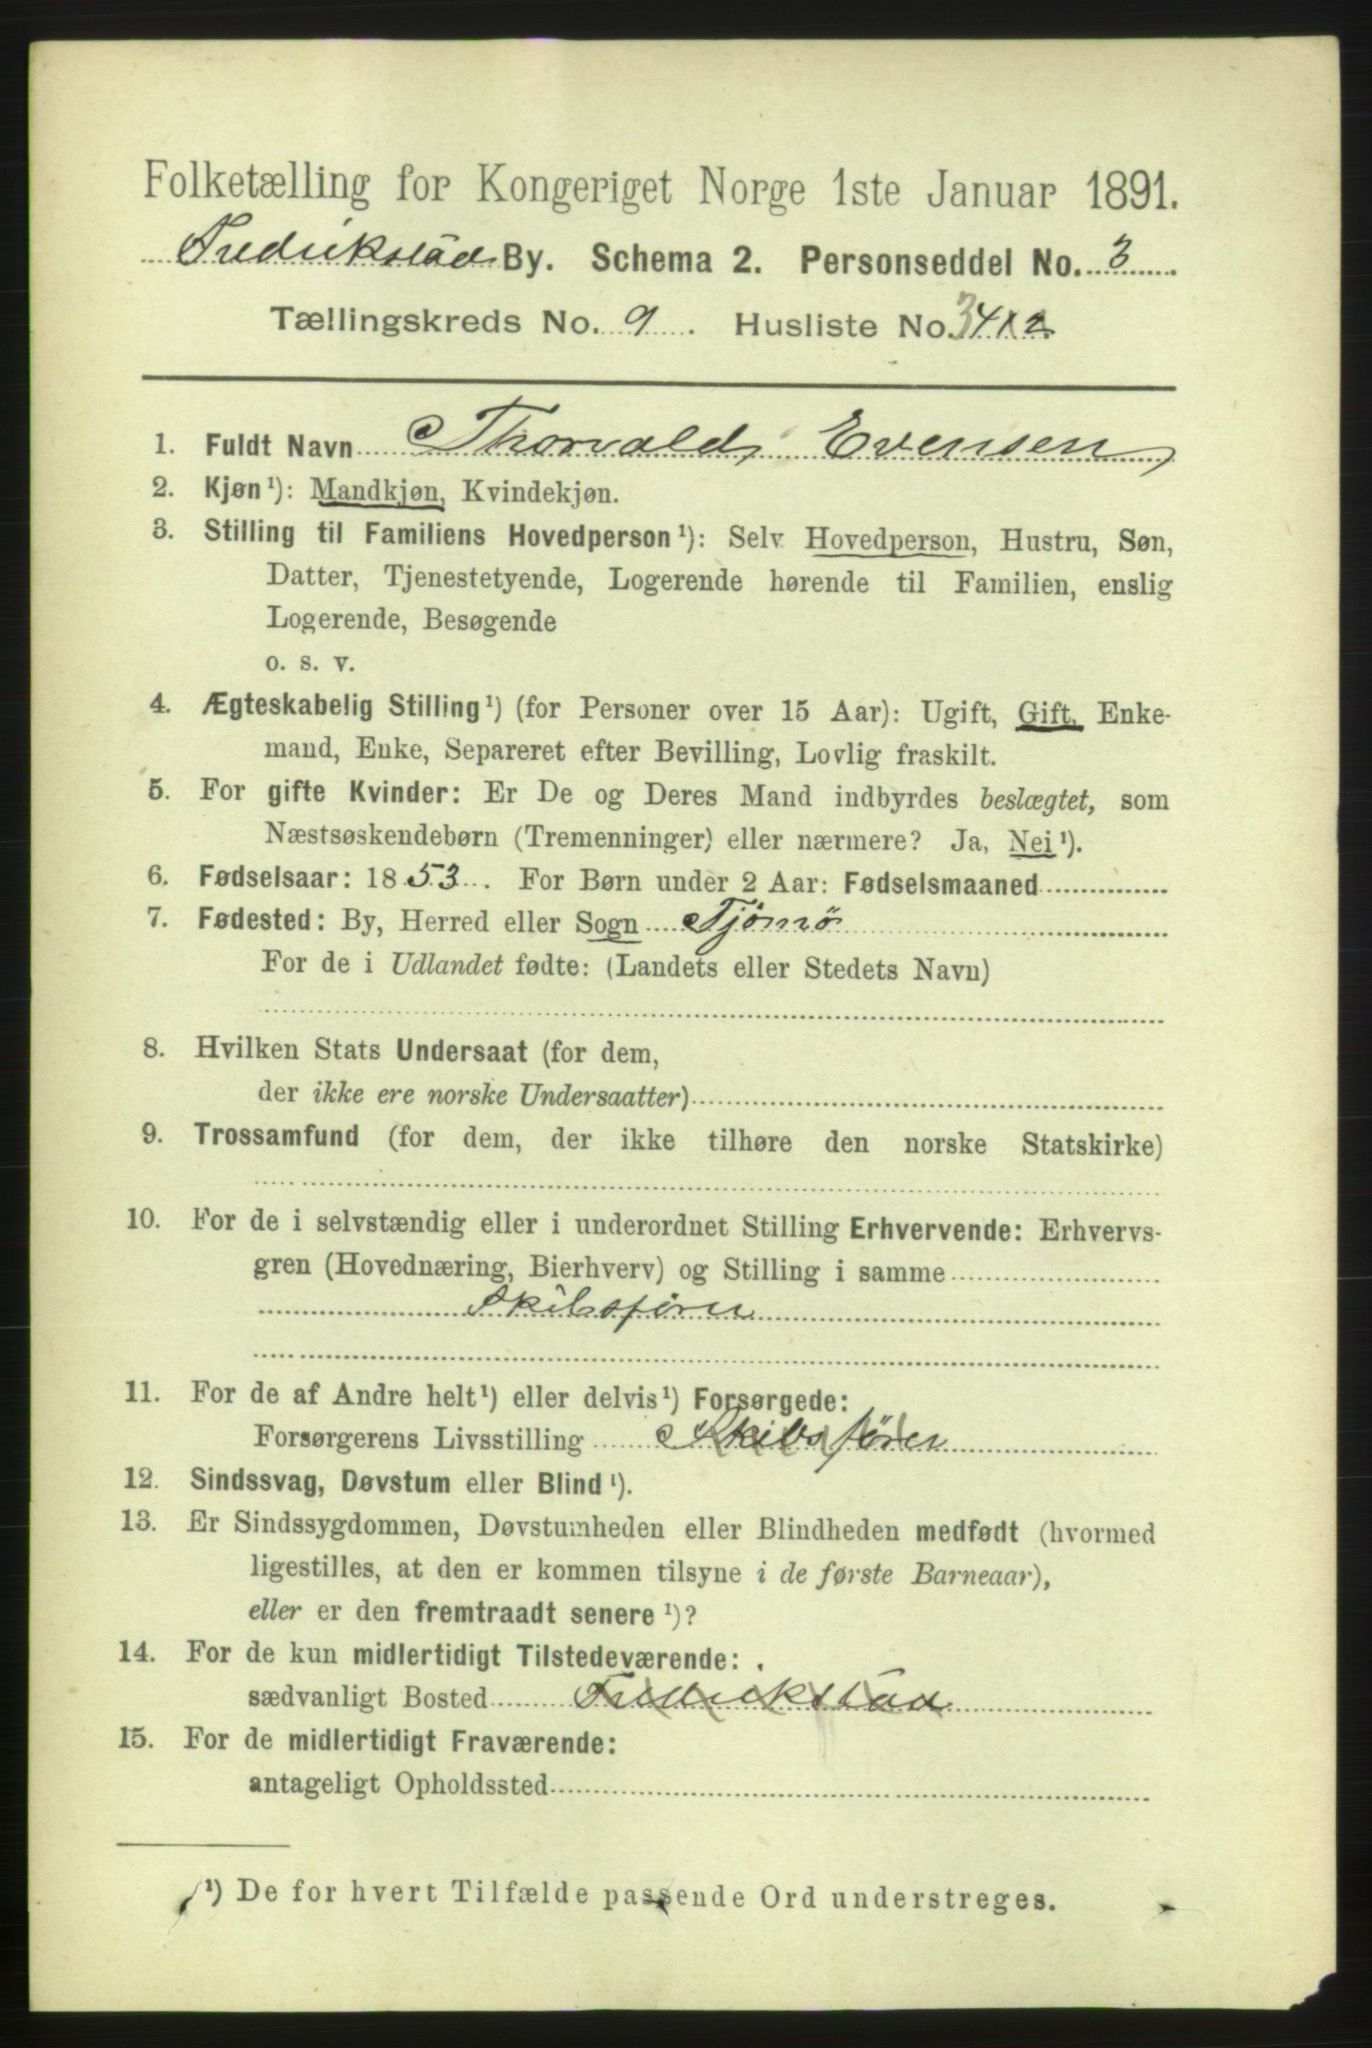 Folketælling for Kongeriget Norge 1ste Januar 1891.
Fredrikstad By. Schema 2. Personseddel No. 3
Tællingskreds No. 9. Husliste No.
1. Fuldt Navn Thorvald Evensen
2. Kjøn¹): Mandkjøn, Kvindekjøn.
3. Stilling til Familiens Hovedperson¹): Selv Hovedperson, Hustru, Søn,
Datter, Tjenestetyende, Logerende hørende til Familien, enslig
Logerende, Besøgende
o. s. v.
4. Ægteskabelig Stilling¹) (for Personer over 15 Aar): Ugift, Gift, Enke-
mand, Enke, Separeret efter Bevilling, Lovlig fraskilt.
5. For gifte Kvinder: Er De og Deres Mand indbyrdes beslægtet, som
Næstsøskendebørn (Tremenninger) eller nærmere? Ja, Nei¹).
6. Fødselsaar: 1853. For Børn under 2 Aar: Fødselsmaaned
7. Fødested: By, Herred eller Sogn Tjømø
For de i Udlandet fødte: (Landets eller Stedets Navn)
8. Hvilken Stats Undersaat (for dem,
der ikke ere norske Undersaatter)
9. Trossamfund (for dem, der ikke tilhøre den norske Statskirke)
10. For de i selvstændig eller i underordnet Stilling Erhvervende: Erhvervs-
gren (Hovednæring, Bierhverv) og Stilling i samme
Skibsfører
11. For de af Andre helt¹) eller delvis¹) Forsørgede:
Forsørgerens Livsstilling Skibsfører
12. Sindssvag, Døvstum eller Blind¹).
13. Er Sindssygdommen, Døvstumheden eller Blindheden medfødt (hvormed
ligestilles, at den er kommen tilsyne i de første Barneaar),
eller er den fremtraadt senere¹)?
14. For de kun midlertidigt Tilstedeværende:
sædvanligt Bosted Fredrikstad
15. For de midlertidigt Fraværende:
antageligt Opholdssted
¹) De for hvert Tilfælde passende Ord understreges.